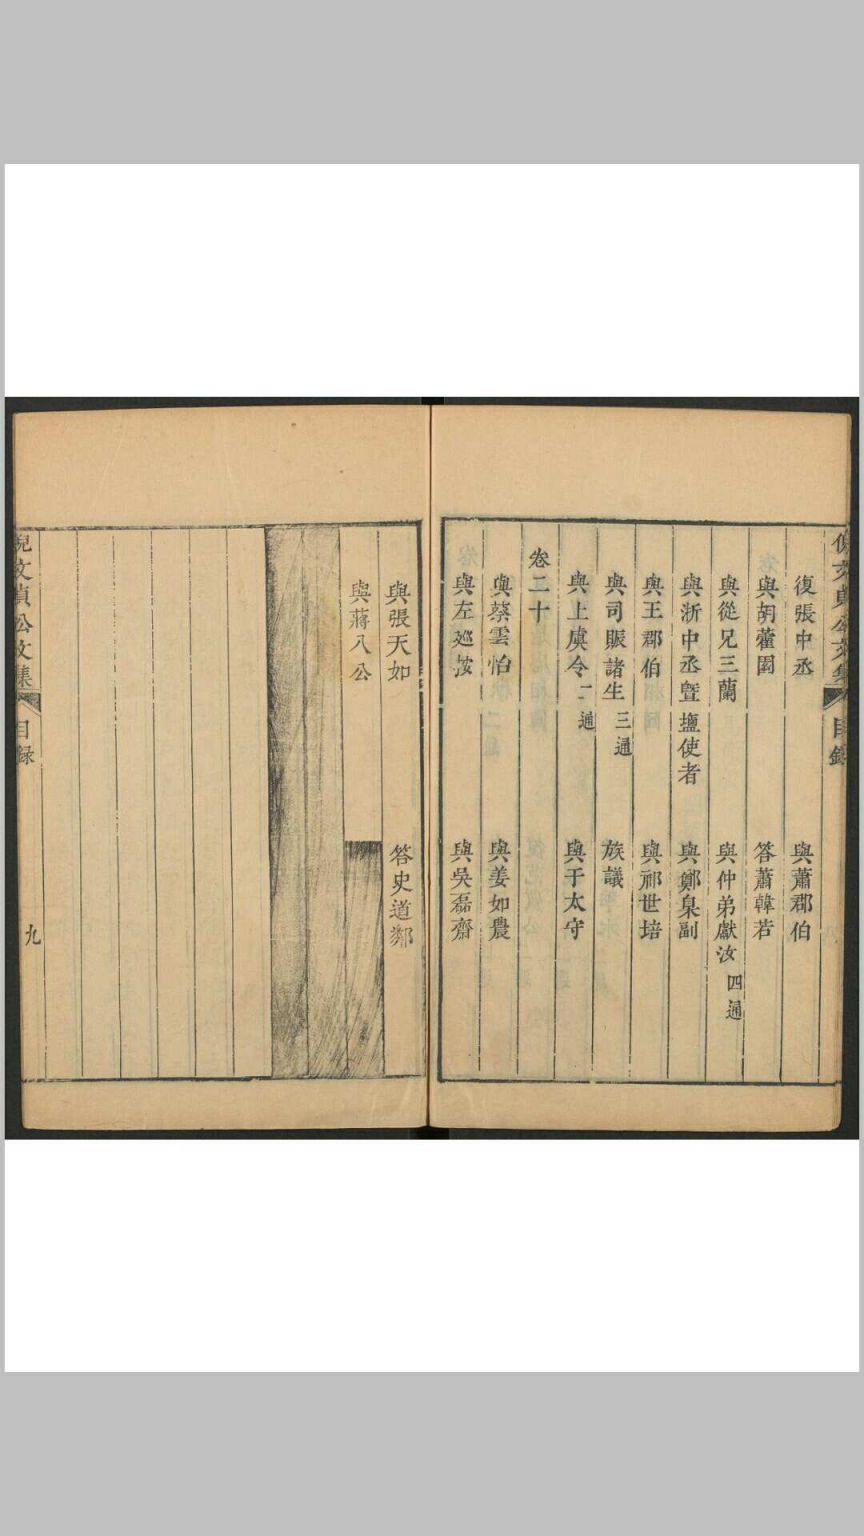 倪文貞公文集 目録
復張中丞 與蕭郡伯
與胡藿園 答蕭韓若
與從兄三蘭 與仲弟獻汝 四通
與浙中丞暨鹽使者 與鄭臬副
與王郡伯 與祁世培
與司賑諸生 三通 族議
與上虞令 二通 與于太守
卷二十
與蔡雲怡 與姜如農
與左巡按 與吳磊齋
與張天如 答史道鄰
與蔣八公
倪文貞公文集 目録 九